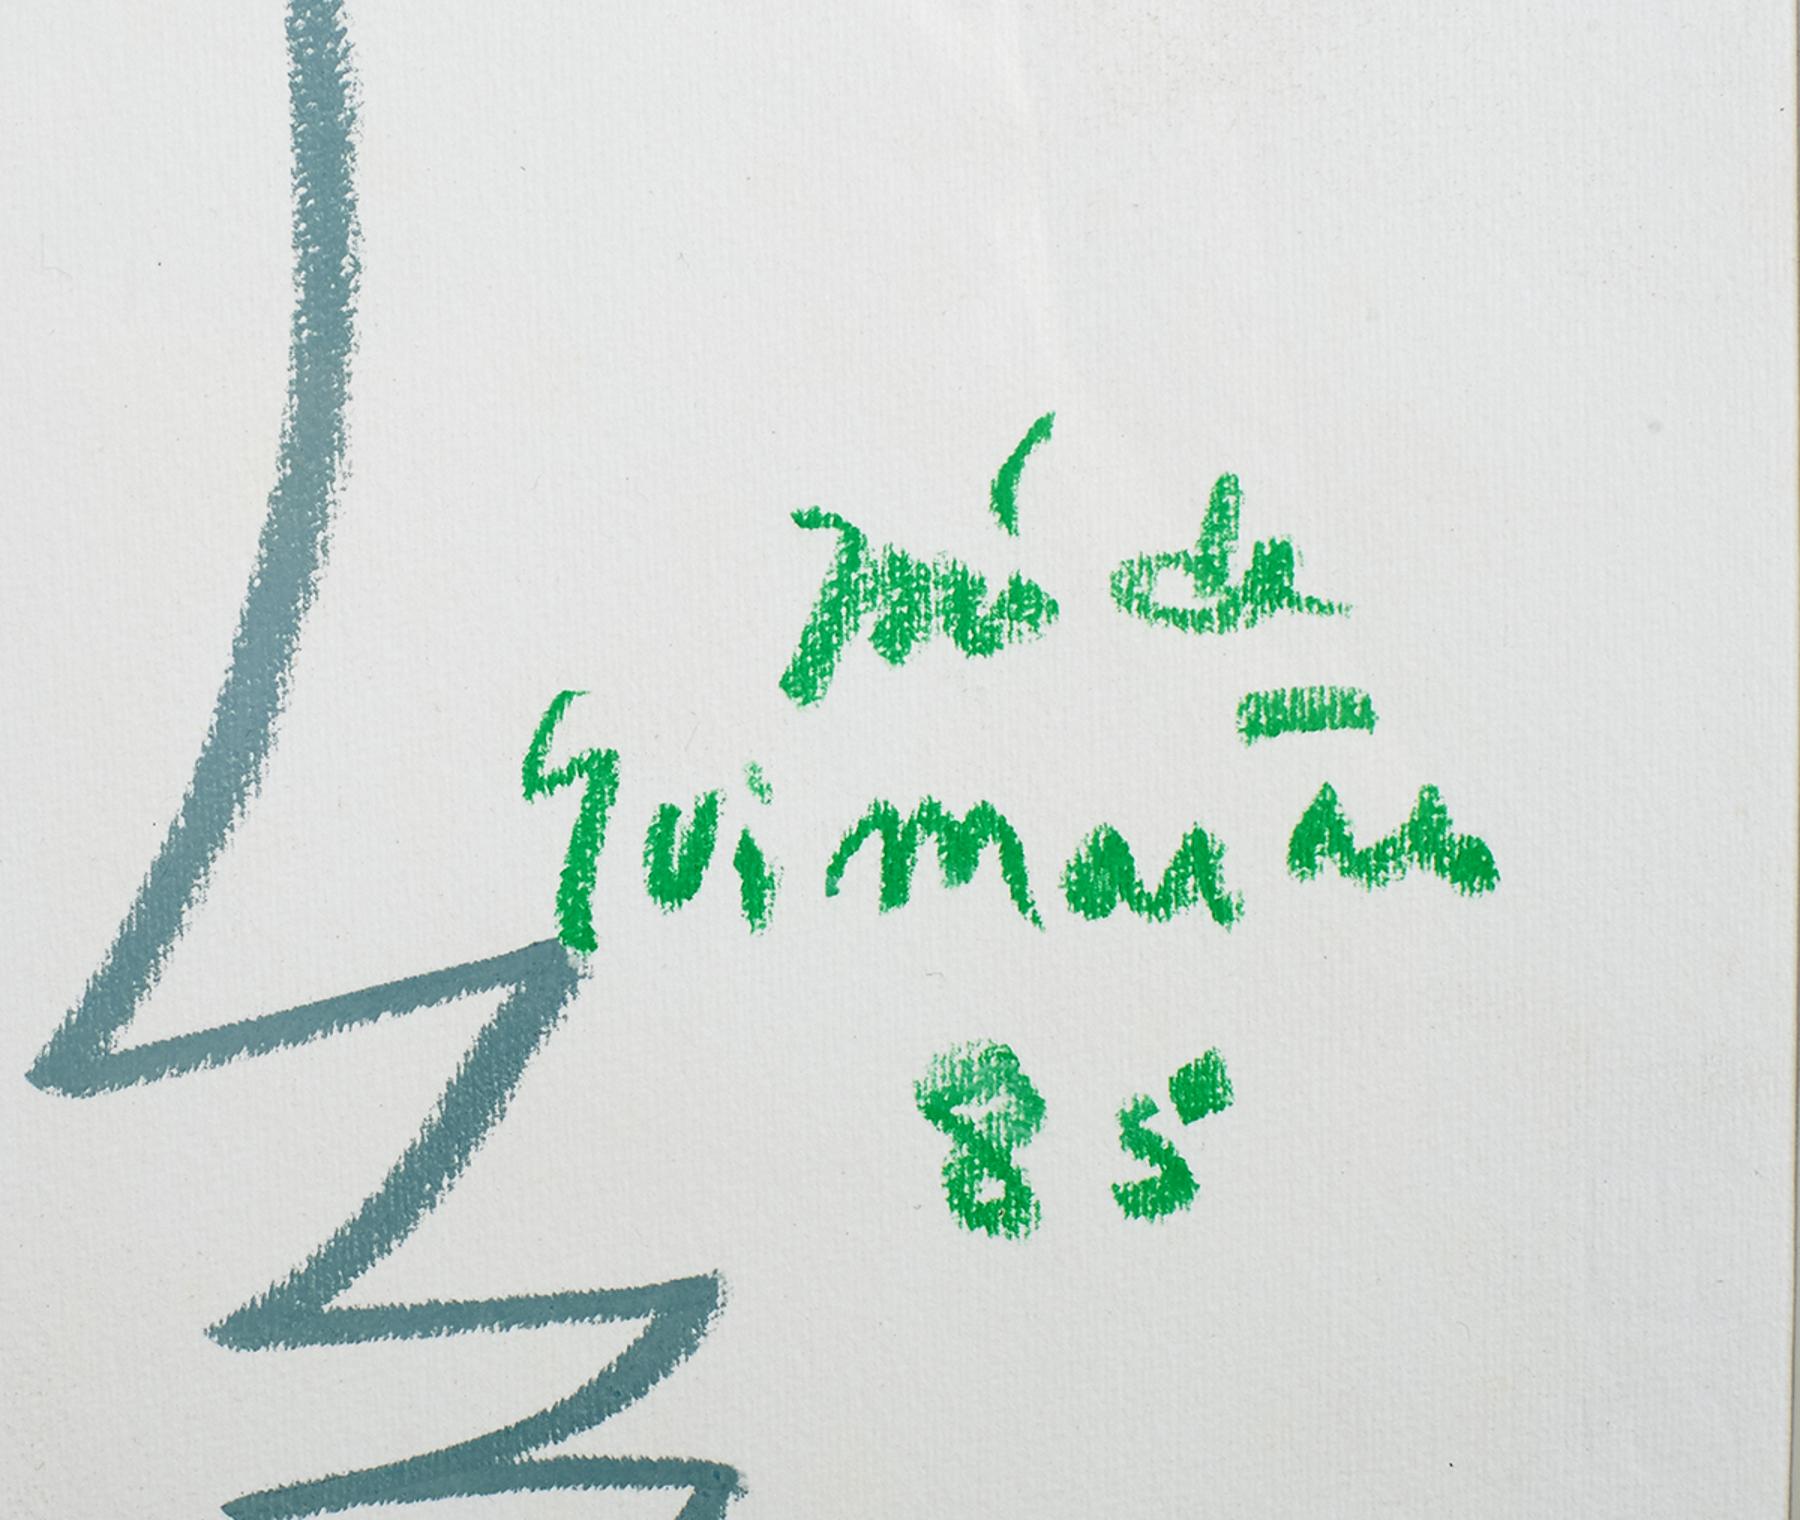 José de
Guimarães
85